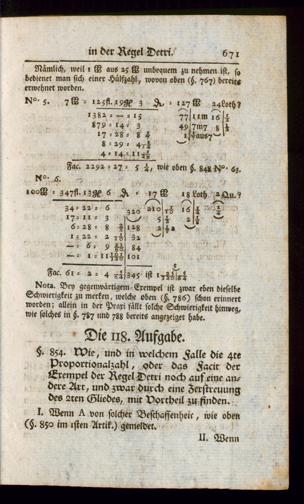 in der Regel Detri. 671
Nämlich, weil 1 ℔ aus 25 ℔ unbequem zu nehmen ist, so
bedienet man sich einer Hülfzahl, wovon oben (§. 767) bereits
erwehnet worden.
No. 5. 7 ℔ = 125fl. 19 3 = 127 ℔ 24Loth?
1382 = — = 15
879 = 14 = 3
17 = 28 = 8
8 = 29 = 4
4 = 14 = 11
Fac. 2292 = 27 = 5 wie oben §. 842 No. 63.
No. 6.
100℔ = 347fl. 13 6 = 17 ℔ 18 Loth 2 Qu.?
34 = 22 = 6
17 = 11 = 3
6 = 28 = 8
1 = 22 = 2
— = 6 = 9
Fac. 61 = 2 = 4
Nota. Bey gegenwärtigem Exempel ist zwar eben dieselbe
Schwierigkeit zu merken, welche oben (§. 786) schon erinnert
worden; allein in der Praxi fällt solche Schwierigkeit hinweg,
wie solches in §. 787 und 788 bereits angezeiget habe.
Die 118. Aufgabe.
§. 854. Wie, und in welchem Falle die 4te
Proportionalzahl, oder das Facit der
Exempel der Regel Detri noch auf eine an-
dere Art, und zwar durch eine Zerstreuung
des 2ten Gliedes, mit Vortheil zu finden.
I. Wenn A von solcher Beschaffenheit, wie oben
(§. 850 im 1sten Artik.) gemeldet.
II. Wenn